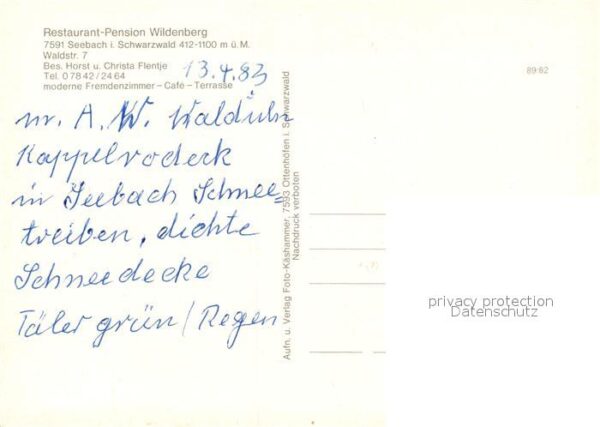 Restaurant-Pension Wildenberg
7591 Seebach i. Schwarzwald 412-1100 m ü. M.
Waldstr. 7
Bes. Horst u. Christa Flentje
Tel. 0 78 42 / 24 64
moderne Fremdenzimmer – Café – Terrasse
13.4.83
m. A. W. Waldulm
Kappelrodeck
in Seebach Schnee=
treiben, dichte
Schneedecke
Täler grün / Regen
Aufn. u. Verlag Foto-Käshammer, 7593 Ottenhöfen i. Schwarzwald
Nachdruck verboten
89:82
privacy protection
Datenschutz